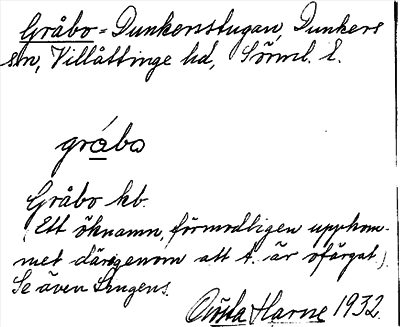 Gråbo = Dunkersstugan, Dunkers
sn, Villåttinge hd, Sörml. l.
gråbo
Gråbo kb.
(Ett öknamn, förmodligen uppkom-
met därigenom att t. är ofärgat.)
Se även
Harne 1932.